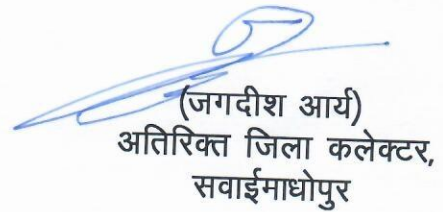 (जगदीश आर्य)
अतिरिक्त जिला कलेक्टर,
सवाईमाधोपुर